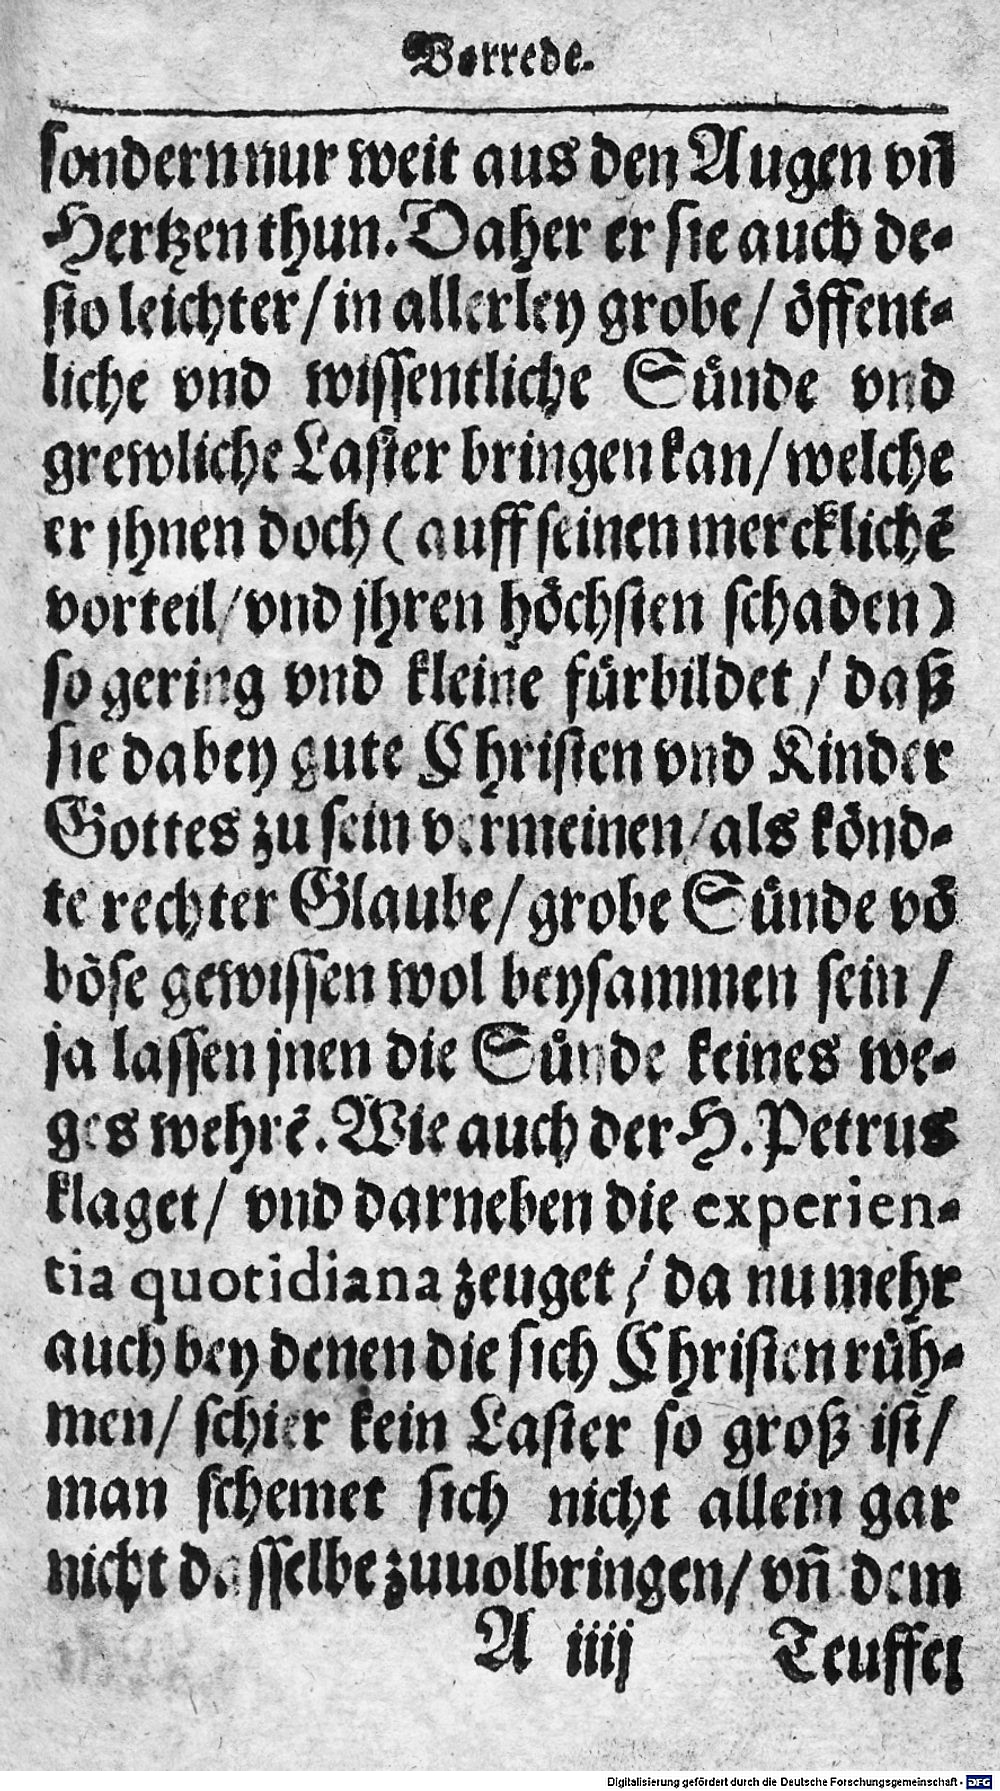 Vorrede.
sondern nur weit aus den Augen vñ
Hertzen thun. Daher er sie auch de-
sto leichter / in allerley grobe / öffent-
liche vnd wissentliche Sünde vnd
grewliche Laster bringen kan / welche
er jhnen doch ( auff seinen mercklichẽ
vorteil / vnd jhren höchsten schaden )
so gering vnd kleine fürbildet / daß
sie dabey gute Christen vnd Kinder
Gottes zu sein vermeinen / als könd-
te rechter Glaube / grobe Sünde võ
böse gewissen wol beysammen sein /
ja lassen jnen die Sünde keines we-
ges wehrẽ. Wie auch der H. Petrus
klaget / vnd darneben die experien-
tia quotidiana zeuget / da nu mehr
auch bey denen die sich Christen rüh-
men / schier kein Laster so groß ist /
man schemet sich nicht allein gar
nicht dasselbe zuuolbringen / vñ dem
A iiij Teuffel
Digitalisierung gefördert durch die Deutsche Forschungsgemeinschaft - DFG